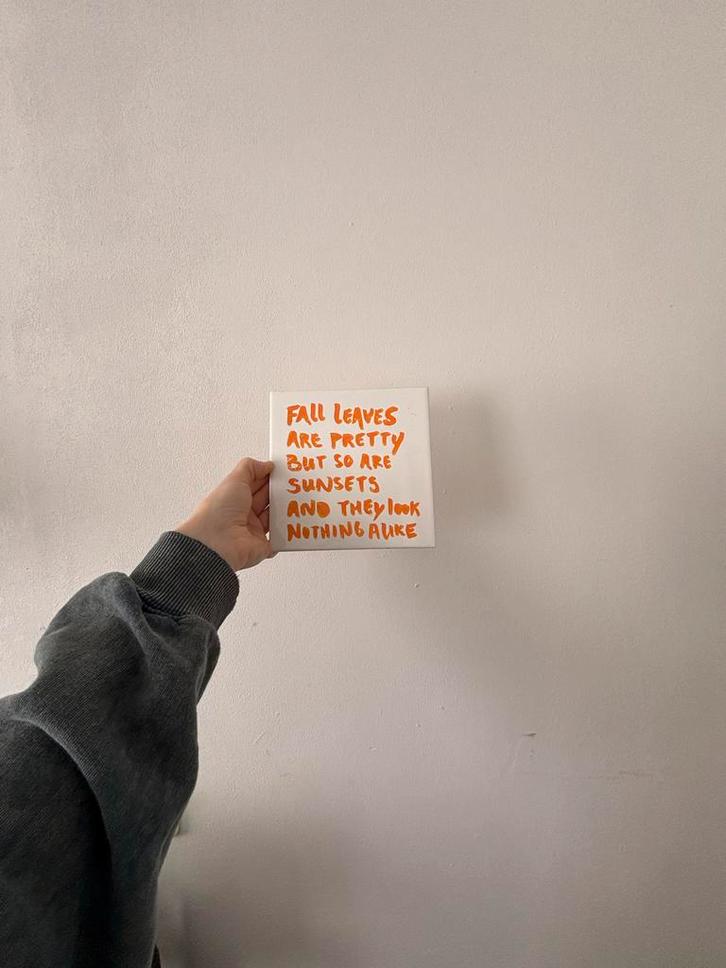 FALL LEAVES
ARE PRETTY
BUT SO ARE
SUNSETS
AND THEY look
NOTHING ALIKE